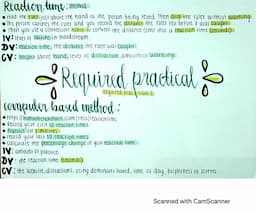 Reaction time:
• Hold the ruler above the hand of the person being tested. Then drop the ruler without warning.
• The person catches the ruler and you record the distance the ruler fell before it was caught.
• Then you use a conversion to convert the distance (cm) into a reaction time (seconds).
IV: level of
DV: reaction time, the distance the ruler was caught
CV: height above hand, level of distraction, amount of warning
Required practical
computer based method:
•
• Record your first 10 reaction times
• Practice for 5 minutes
• record your last 10 reaction times
• Calculate the percentage change in your reaction time.
IV: amount of practice
DV: the reaction time (seconds)
CV: the website, distractions, using dominant hand, time of day, brightness of screen
Scanned with CamScanner